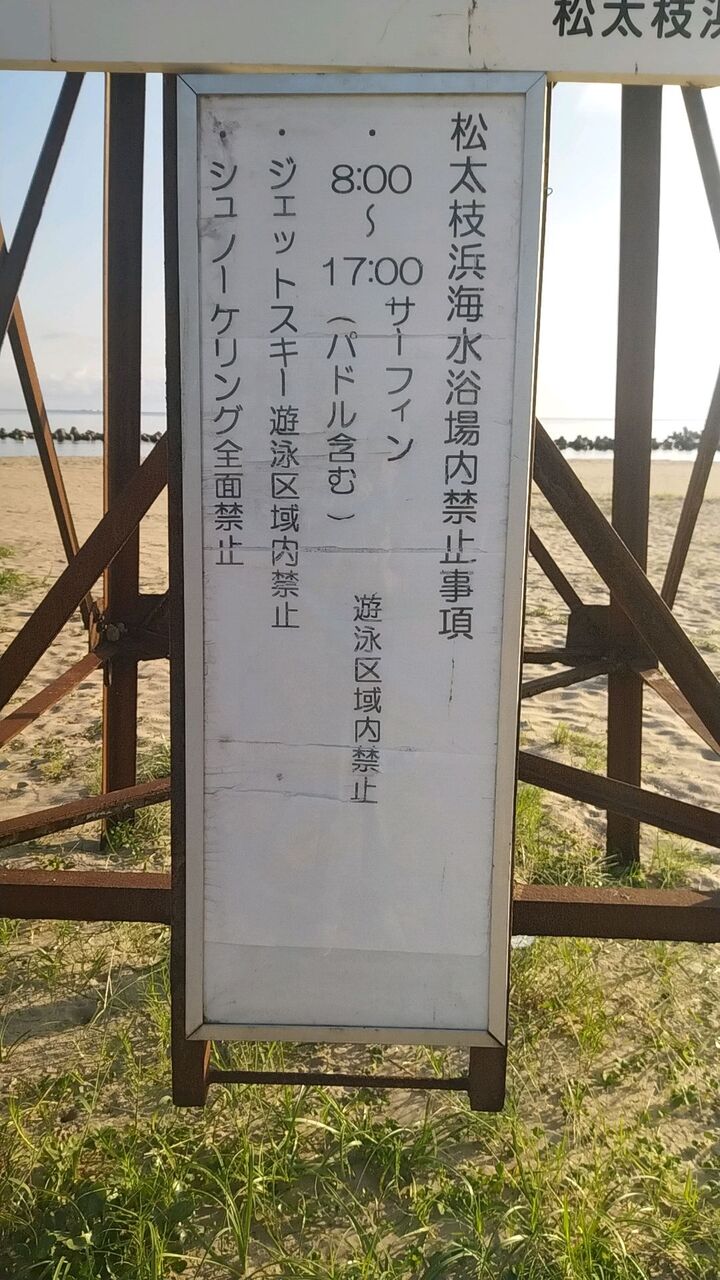 松太枝浜
松太枝浜海水浴場内禁止事項
・8:00～17:00サーフィン（パドル含む）遊泳区域内禁止
・ジェットスキー遊泳区域内禁止
・シュノーケリング全面禁止